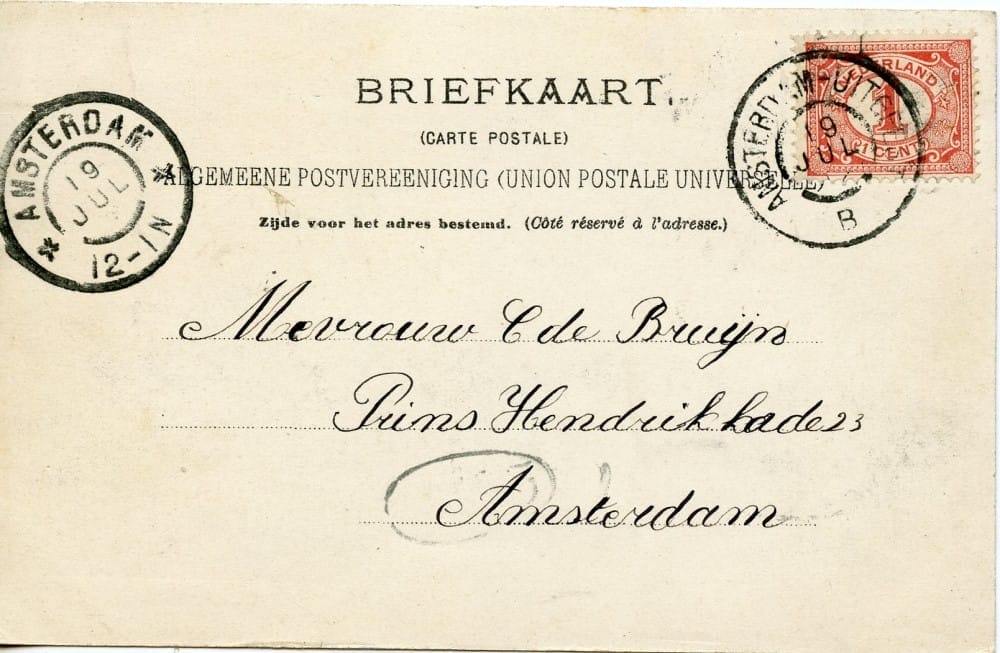 BRIEFKAART.
(CARTE POSTALE)
ALGEMEENE POSTVEREENIGING (UNION POSTALE UNIVERSELLE)
Zijde voor het adres bestemd. (Côté réservé à l'adresse.)
AMSTERDAM
19
JUL
12-1N
NEDERLAND
1
CENT
AMSTERDAM-UITGEEST
19
JUL
B
Mevrouw C de Bruijn
Prins Hendrikkade 23
Amsterdam